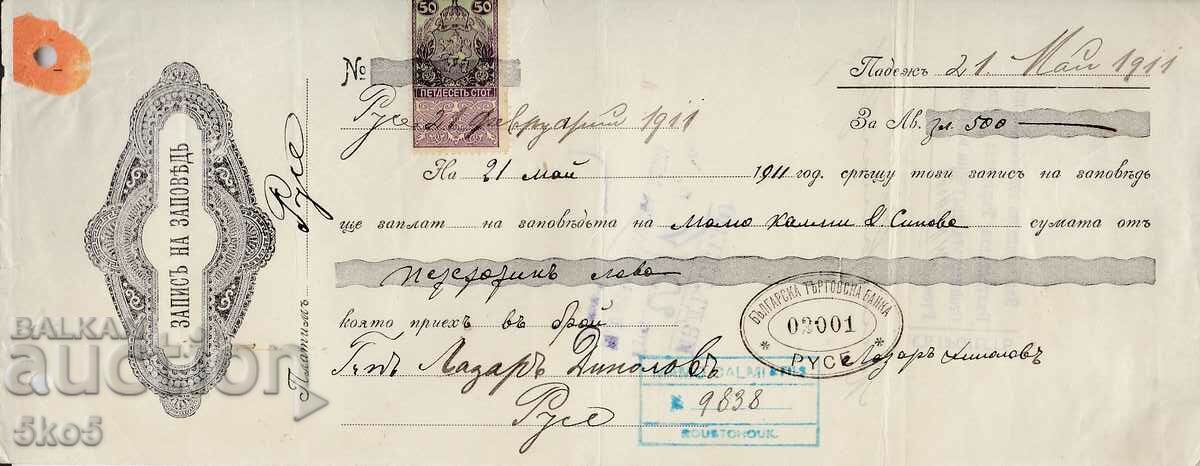 50 50
ПЕТДЕСЕТЬ СТОТ.
№
Падежъ 21. Май 1911
Русе 21 февруарий 1911
За Лв. зл. 500
На 21 май 1911 год. срѣщу този записъ на заповѣдь
ще заплат на заповѣдьта на Момо & Синове сумата отъ
лева
която приехъ въ брой
Г-нъ Лазаръ
Русе
Лазаръ
ЗАПИСЪ НА ЗАПОВѢДЬ
Платимъ Русе
БЪЛГАРСКА ТЪРГОВСКА БАНКА
03001
* РУСЕ *
& FILS
№ 9838
ROUSTCHOUK.
BALKAN
auction
5ko5